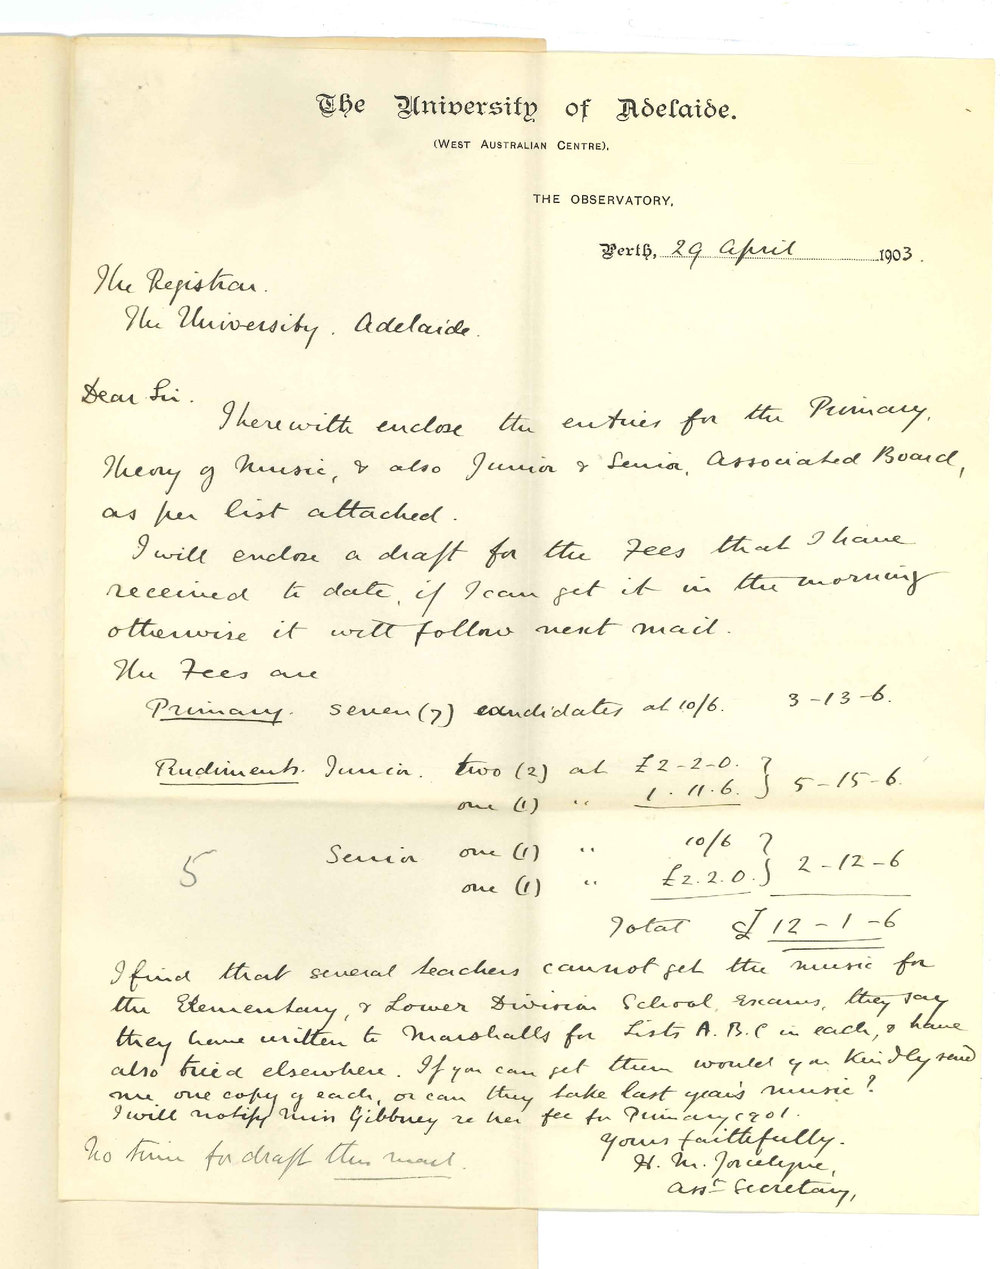 The University of Adelaide.
(West Australian Centre).
THE OBSERVATORY,
Perth, 29 April 1903.
The Registrar.
The University. Adelaide.
Dear Sir.
I herewith enclose the entries for the Primary,
Theory of Music, & also Junior & Senior, Associated Board,
as per list attached.
I will enclose a draft for the Fees that I have
received to date, if I can get it in the morning
otherwise it will follow next mail.
The Fees are
Primary. seven (7) candidates at 10/6. 3-13-6.
Rudiments. Junior. two (2) at £2-2-0. } 5-15-6.
one (1) " 1.11.6. }
Senior one (1) " 10/6 } 2-12-6
5
one (1) " £2.2.0. }
Total £12-1-6
I find that several teachers cannot get the music for
the Elementary, & Lower Division School Exams, they say
they have written to Marshalls for Lists A. B. C in each, & have
also tried elsewhere. If you can get them would you kindly send
me one copy of each, or can they take last year's music?
I will notify Miss Gibbney re her fee for Primary 1901.
Yours faithfully.
H. M. Jocelyne,
Asst Secretary,
No time for draft this mail.